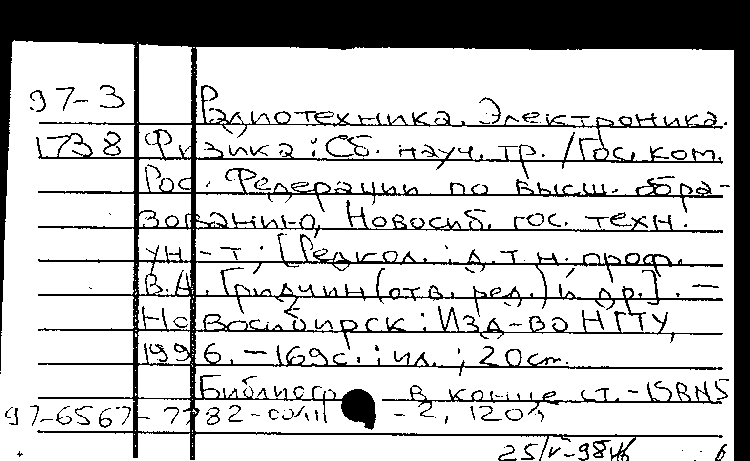 97-3 Радиотехника. Электроника.
1738 Физика : Сб. науч. тр. / Гос. ком.
Рос. Федерации по высш. обра-
зованию, Новосиб. гос. техн.
ун-т ; [Редкол. : д.т.н., проф.
В.А. Гридчин (отв. ред.) и др.]. —
Новосибирск : Изд-во НГТУ,
1996. - 169с. : ил. ; 20см.
Библиогр в конце ст. - ISBN 5
97-6567 - 7782- -2, 120
25/V-98
6